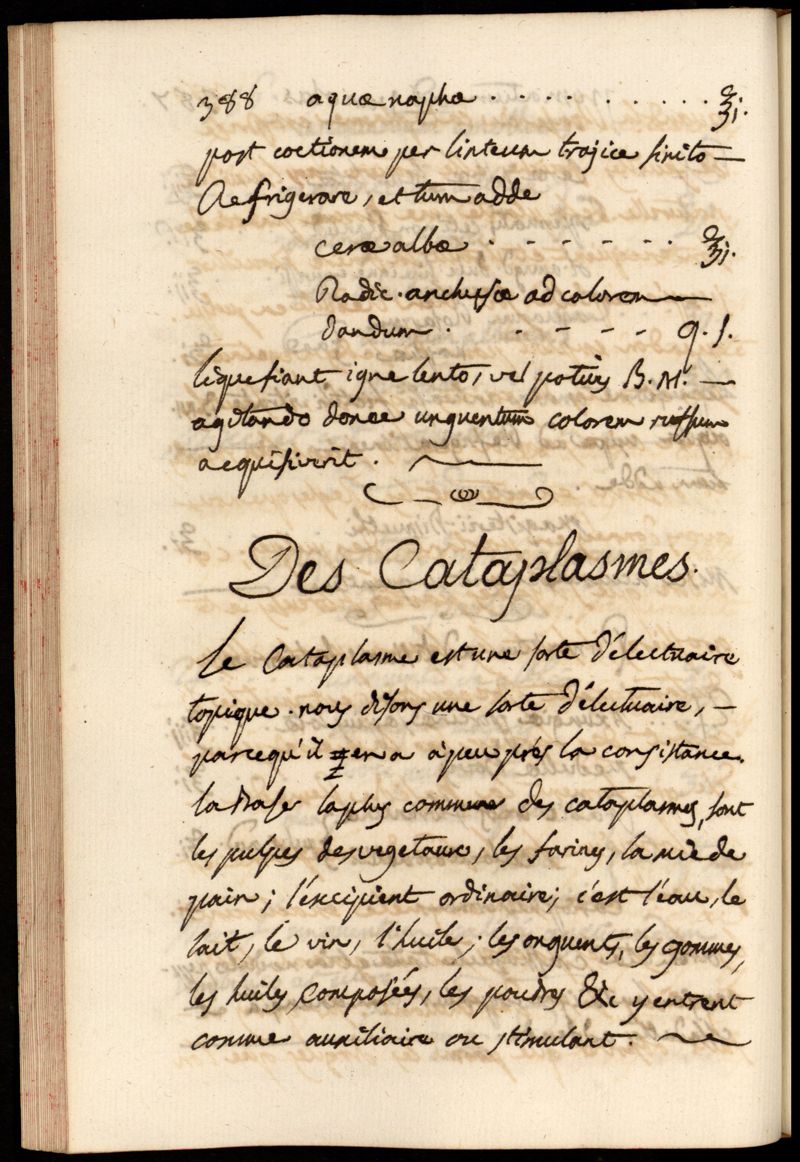 388 aquæ naphæ . . . . . . . . . . ℥j.
post coctionem per linteum trajice sinito —
Refrigerare, et tum adde
ceræ albæ . - - - . - . . ℥j.
Radic. anchusæ ad colorem —
dandum . . - - - - q. s.
liquefiant igne lento, vel potius B. M. —
agitando donec unguentum colorem russum
acquisiverit .
Des Cataplasmes.
Le Cataplasme est une sorte d'électuaire
topique. nous disons une sorte d'électuaire, —
parcequ'il en a à peu près la consistance.
la Base la plus commune des cataplasmes, sont
les pulpes des vegetaux, les farines, la mie de
pain; l'éxcipient ordinaire; c'est l'eau, le
lait, le vin, l'huile; les onguents, les gommes,
les huiles composées, les poudres &c y entrent
comme auxiliaire ou stimulant.